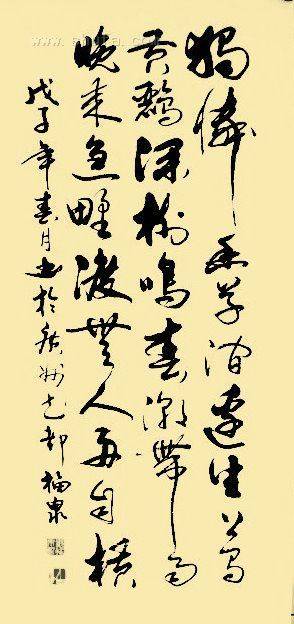 獨憐幽草澗邊生上有
黃鸝深樹鳴春潮帶雨
晚來急野渡無人舟自橫
戊子年春月書於廣州花都